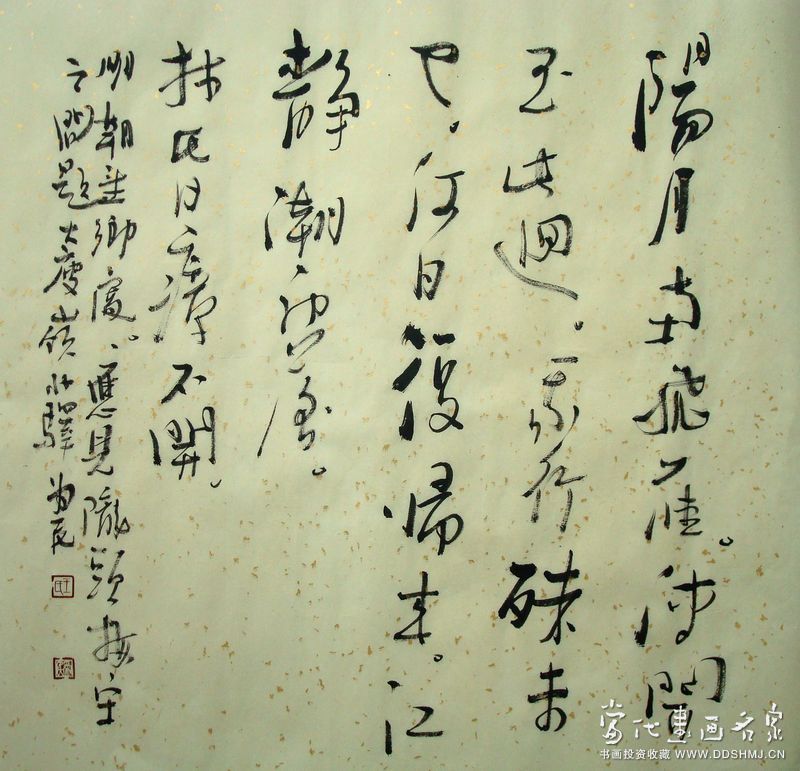 陽月南飛雁。傳聞
至此迴。我行殊未
已。何日復帰来。江
靜潮初落。
林昏瘴不開。
明朝望鄉處。應見隴頭梅宋
之問題大庾嶺北驛 为民
當代書画名家
书画投资收藏 WWW.DDSHMJ.CN